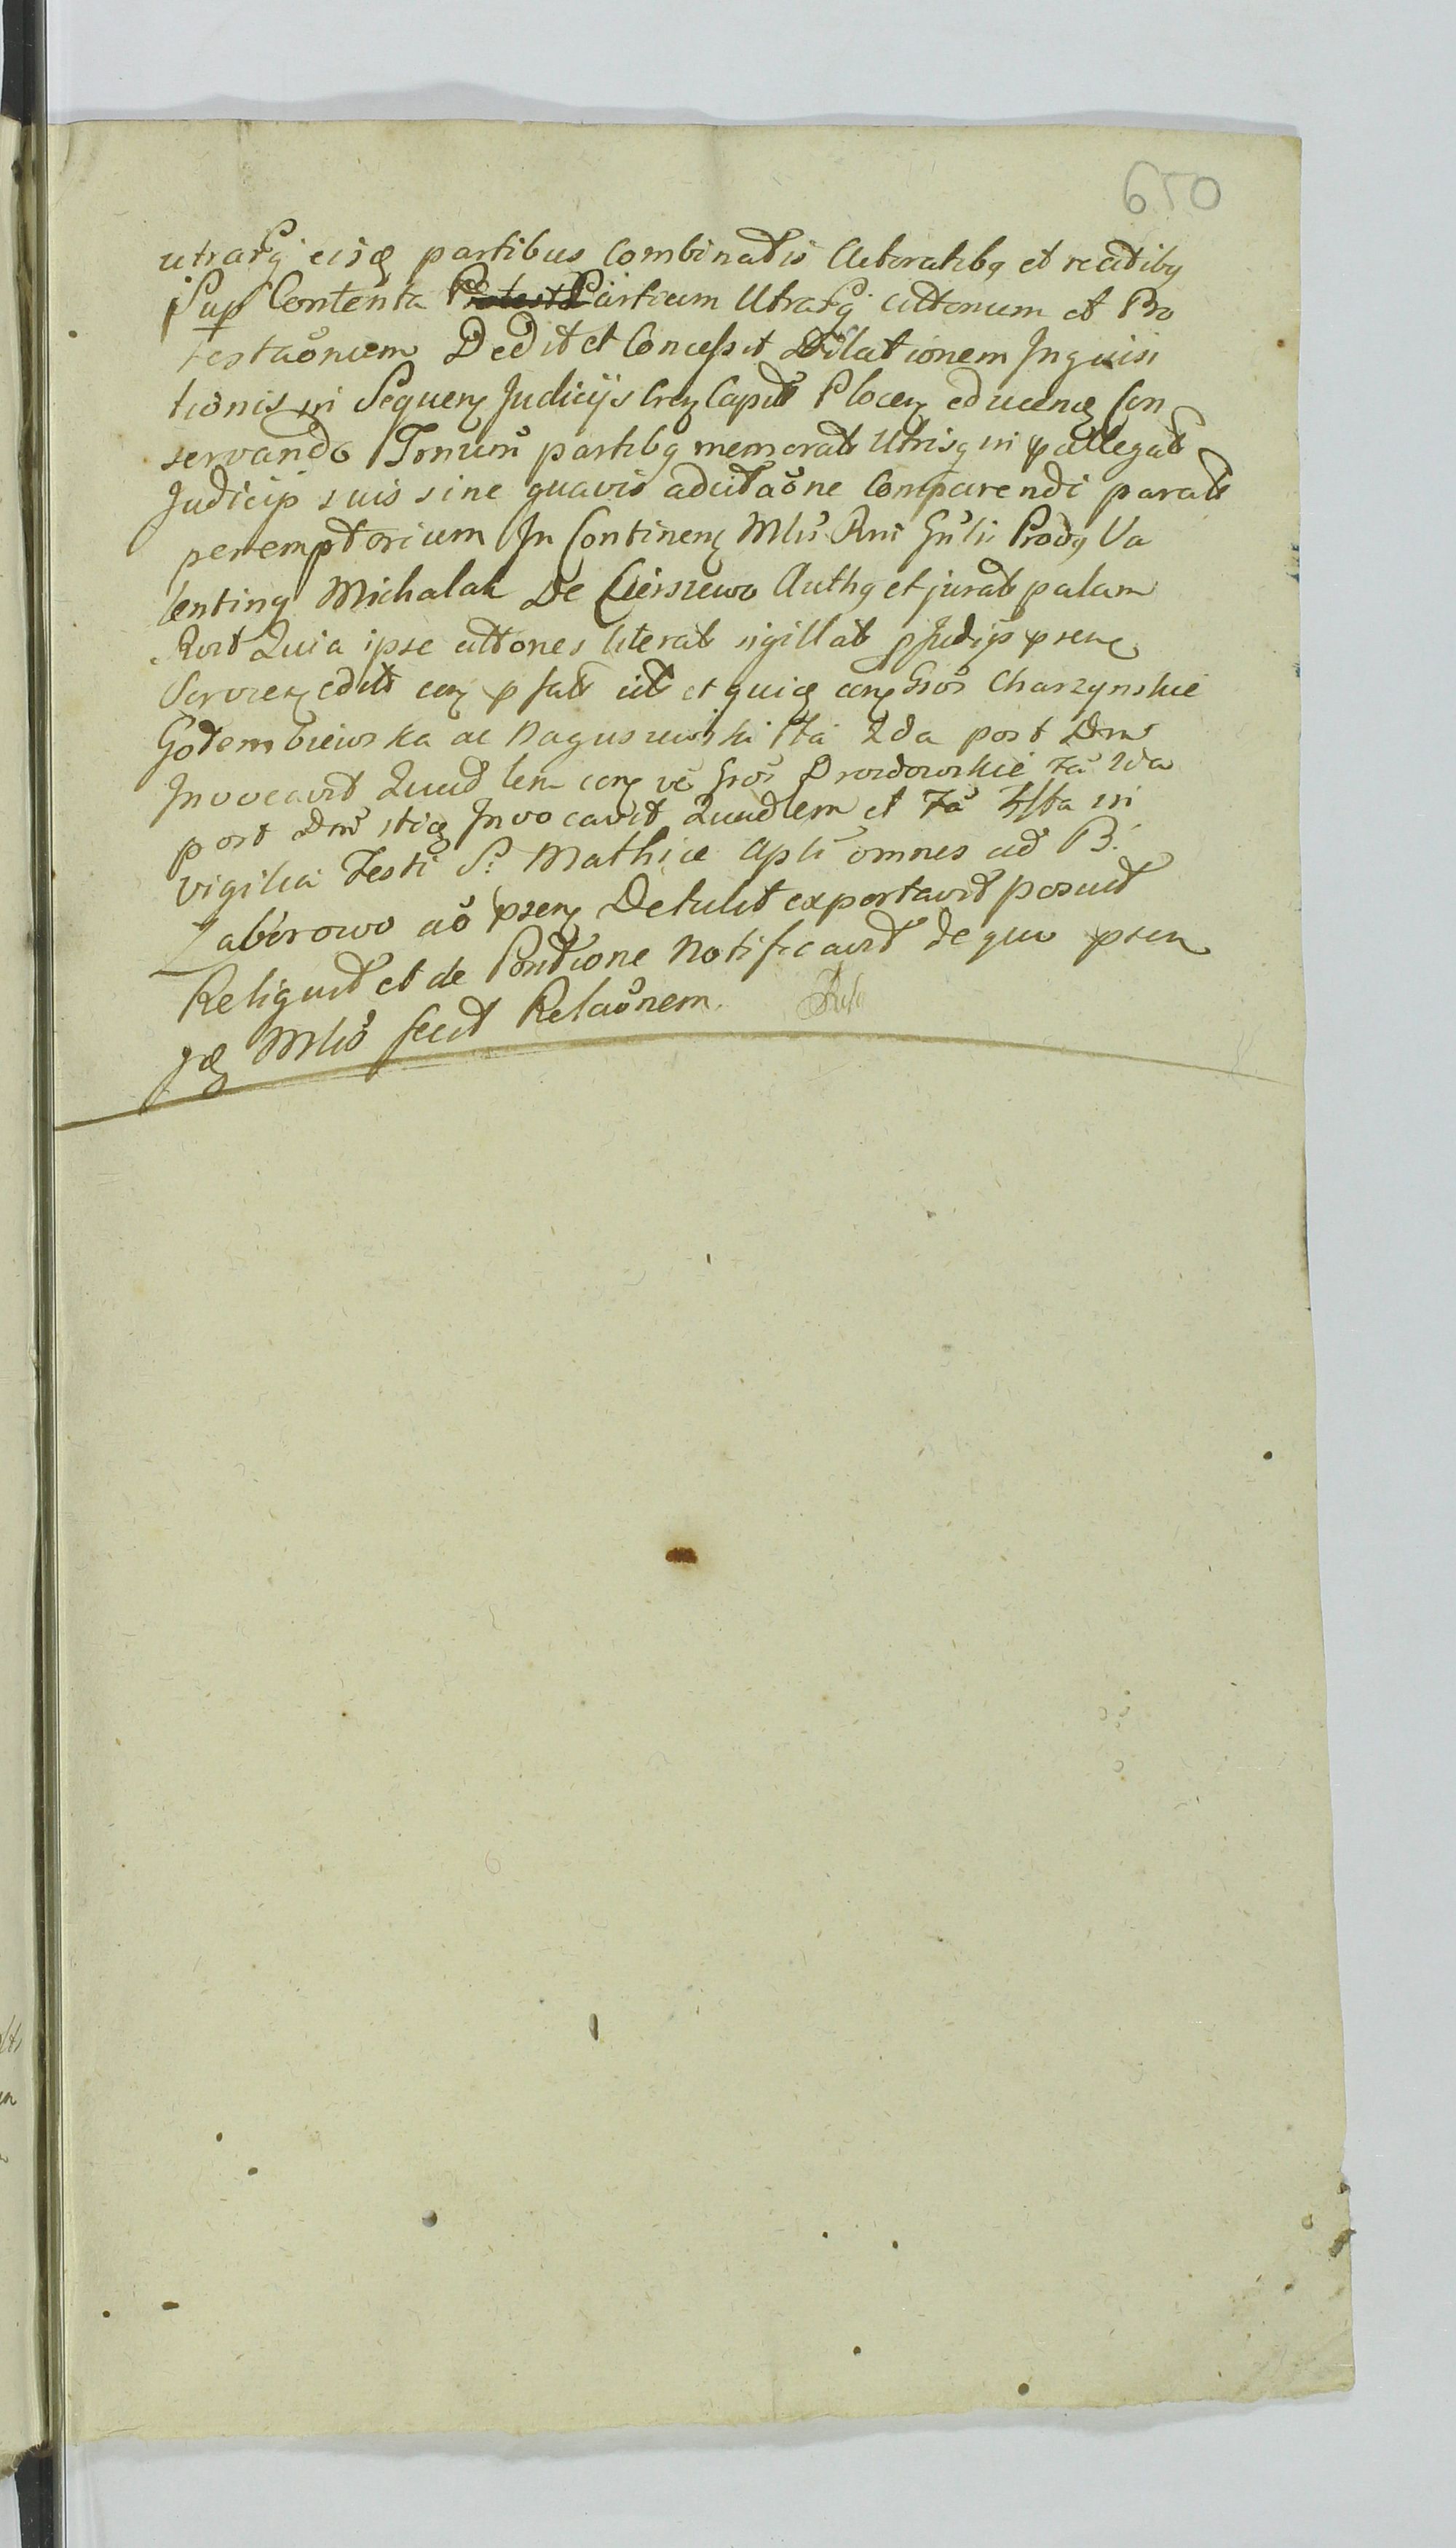 650
utrasq eisq partibus Combinatis Actoratibq et recitibq
Sup Contenta Partium Utrasq cittonum et Pro
testaonum Dedit et Concessit Dilationem Inquisi
tionis in Sequen Judicijs Cren Capit Plocen educenq Con
servando Tnnum partibq memorat Utrisq in pallegat
Judicijs suis sine quavis adcitaone Comparendi parat
peremptorium In Continen Mlis Rni Gnlis Prodq Va
lentinq Michalak De Ciersżewo Authq et jurat palam
Rvit Quia ipse cittones literat sigillat Judijs psen
Servien edit con pfat cit et quiq con Gsos Charzynskie
Gołembiewska ac Naguszewski fta 2da post Dm
Invocavit Quad len con vo Gsos Drozdowskie fa 2da
post Dm itiq Invocavit Quadlem et fa 4ta in
vigilia festi S: Mathiæ Apli omnes ad B:
Zaborowo ao psen Detulit exportavit posuit
Reliquit et de Position Notificavit de quo psen
Idq Mlis fecit Relaonem.